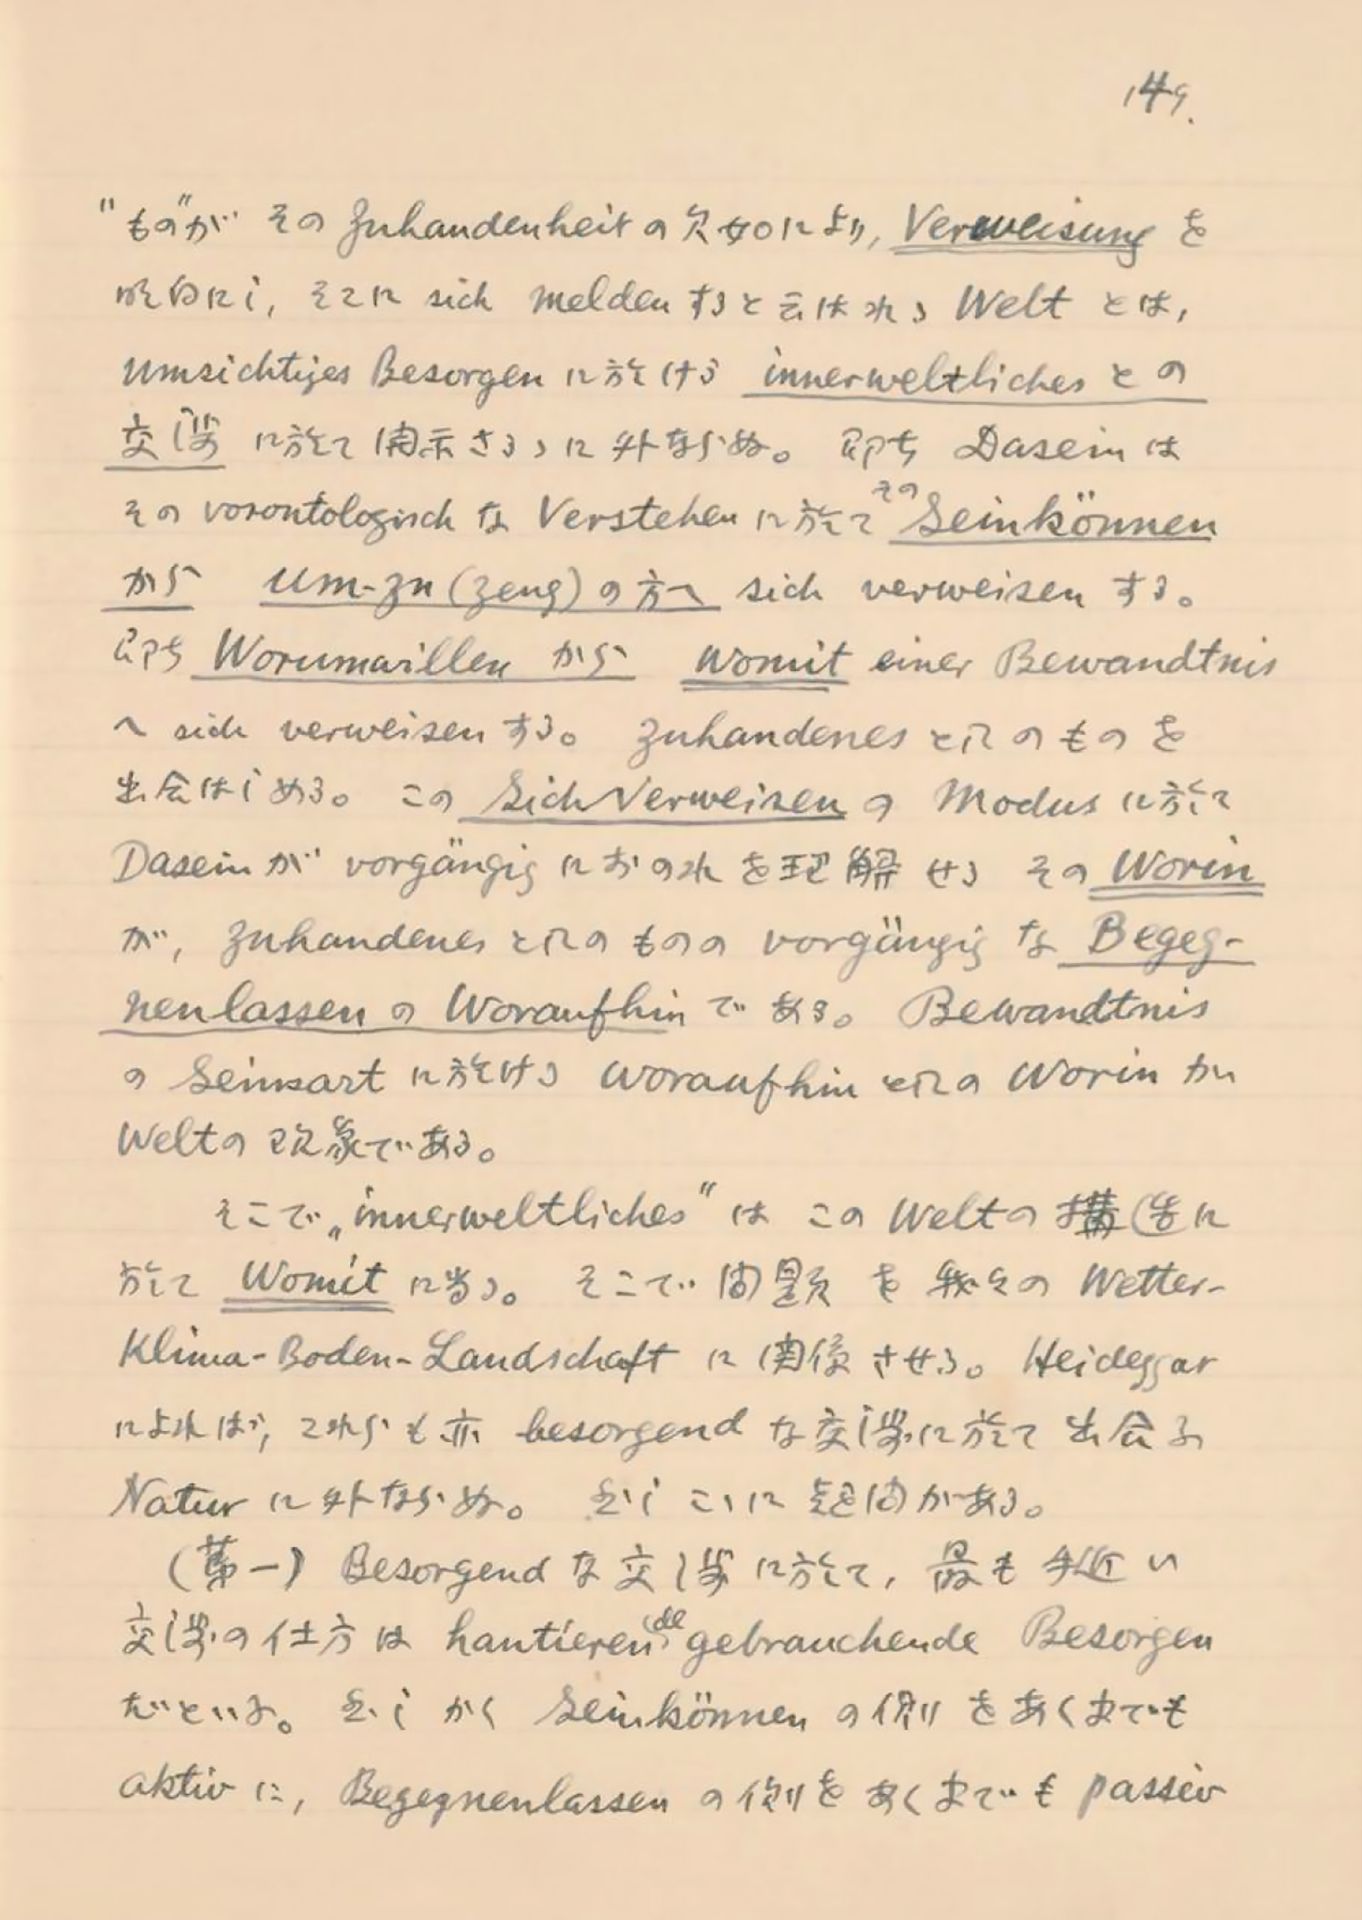 149.
"もの"が その Zuhandenheit の欠如により, Verweisung を
明白にし, そこに sich melden すると云はれる Welt とは,
umsichtiges Besorgen に於ける innerweltliches との
交渉 に於て開示さるゝに外ならぬ。 即ち Dasein は
その vorontologisch な Verstehen に於て その Seinkönnen
から um-zu (Zeug) の方へ sich verweisen する。
即ち Worumwillen から Womit einer Bewandtnis
へ sich verweisen する。 Zuhandenes としてのものを
出会はしめる。 この Sich Verweisen の Modus に於て
Dasein が vorgängig におのれを理解せる その Worin
が, Zuhandenes としてのものの vorgängig な Begeg-
nenlassen の Woraufhin である。 Bewandtnis
の Seinsart に於ける Woraufhin としての Worin が
Welt の 現象である。
そこで „innerweltliches" は この Welt の構造に
於て Womit に当る。 そこで問題を我々の Wetter-
Klima-Boden-Landschaft に関係させる。 Heideggar
によれば, これらも亦 besorgend な交渉に於て出会ふ
Natur に外ならぬ。 然しこゝに疑問がある。
(第一) Besorgend な交渉に於て, 最も手近い
交渉の仕方は hantieren(de) gebrauchende Besorgen
だといふ。 然しかく Seinkönnen の側をあくまでも
aktiv に, Begegnenlassen の側をあくまでも passiv